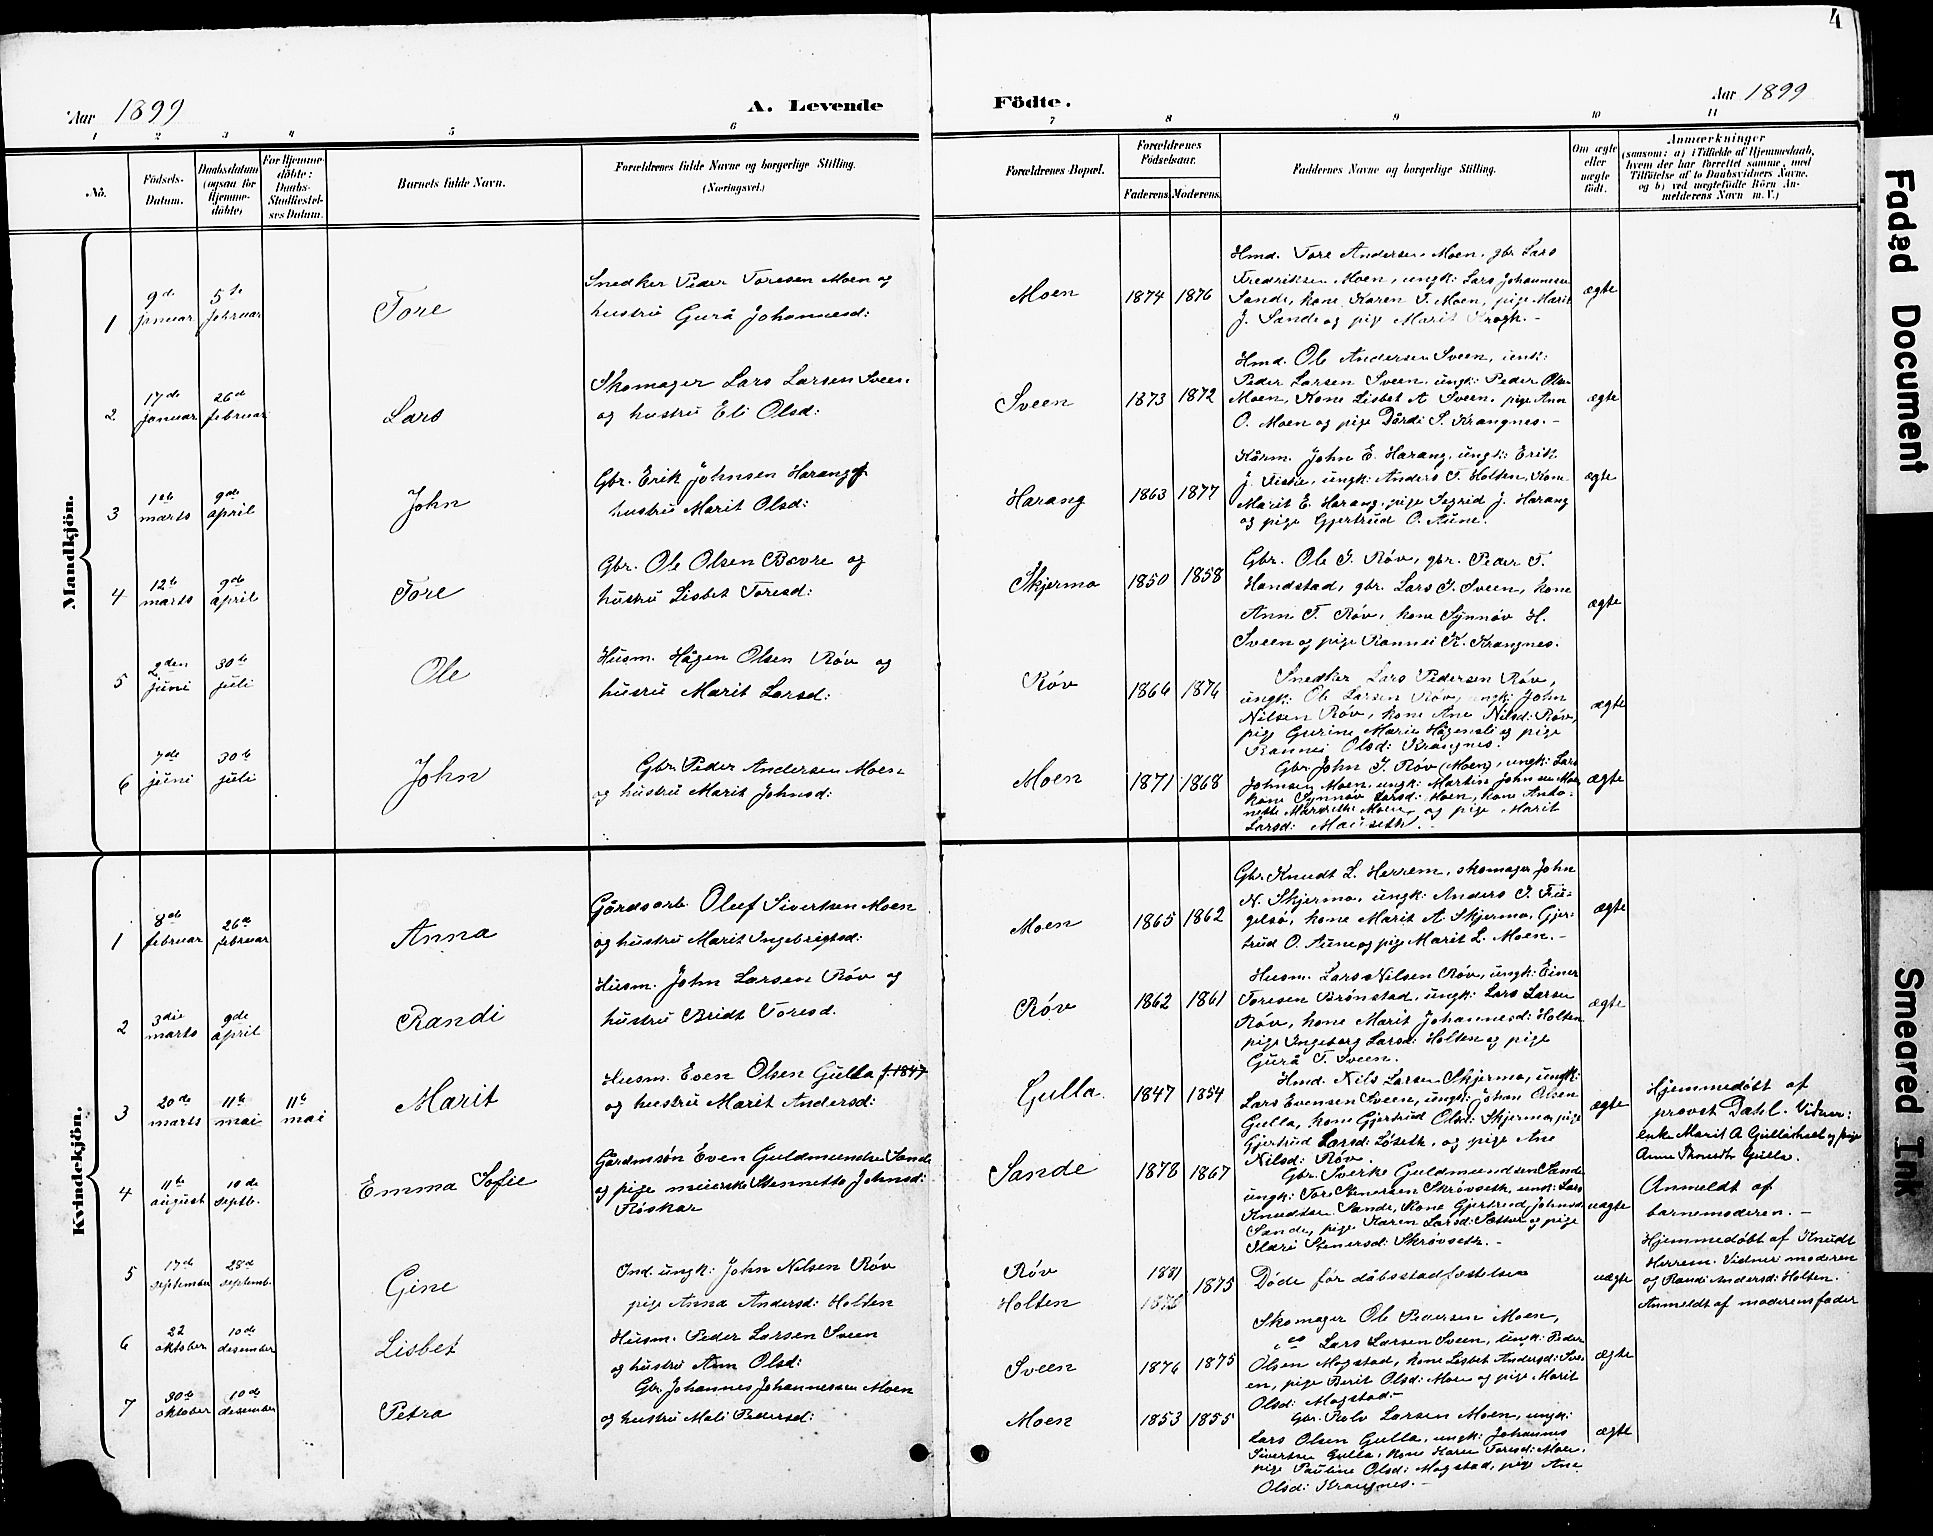 4
Aar 1899
A. Levende Födte.
Aar 1899
1 2 3 4 5 6 7 8 9 10 11
No.
Födsels-Datum.
Daabsdatum (ogsaa for Hjemme-döbte)
For Hjemme-döbte: Daabs-Stadfæstel-ses Datum.
Barnets fulde Navn.
Forældrenes fulde Navne og borgerlige Stilling. (Næringsvei.)
Forældrenes Bopæl.
Forældrenes Födselsaar.
Faderens. Moderens.
Faddernes Navne og borgerlige Stilling.
Om ægte eller uægte födt.
Anmærkninger
(saasom: a) i Tilfælde af Hjemmedaab,
hvem der har forrettet samme, med
Tilföielse af to Daabsvidners Navne,
og b) ved uægtefödte Börn An-
melderens Navn m. V.)
Mandkjön.
1
9de januar
5te februar
Tore
Snedker Peder Toresen Moen og
hustru Gurå Johannesd:
Moen
1874 1876
Hmd. Tore Andersen Moen, gbr Lars
Fredriksen Moen, ungk: Lars Johannesen
Sande, kone Karen T. Moen, pige Marit
J. Sande og pige Marit Krogh.-
ægte
2
17de januar
26de februar
Lars
Skomager Lars Larsen Sveen
og hustru Eli Olsd:
Sveen
1873 1872
Hmd. Ole Andersen Sveen, unk:
Peder Larsen Sveen, ungk: Peder Olsen
Moen, Kone Lisbet A Sveen, pige Ann
O. Moen og pige Dårdi S. Krangnes.-
ægte
3
1ste marts
9de april
John
Gbr. Erik Johnsen Harang og
hustru Marit Olsd:
Harang
1863 1877
Kårm. John E. Harang, ungk: Erik
J. Fiske, ungk: Anders T. Holten, Kone
Marit E. Harang, pige Sigrid J. Harang
og pige Gjertrud O. Aune.
ægte
4
12te marts
9de april
Tore
Gbr. Ole Olsen Bævre og
hustru Lisbet Toresd:
Skjermo
1850 1858
Gbr. Ole I. Røv, gbr. Peder T.
Handstad, gbr. Lars I. Sveen, kone
Ann T. Røv, kone Synnøv H.
Sveen og pige Rannei K. Krangnes.
ægte
5
2den juni
30te juli
Ole
Husm. Hågen Olsen Røv og
hustru Marit Larsd:
Røv
1866 1876
Snedker Lars Pedersen Røv,
ungk: Ole Larsen Røv, ungk: John
Nilsen Røv, kone Ane Nilsd: Røv,
pige Gurine Marie Hågensli og pige
Rannei Olsd: Krangnes.
ægte
6
7de juni
30te juli
John
Gbr. Peder Andersen Moen
og hustru Marit Johnsd:
Moen
1871 1868
Gbr. John I. Røv (Moen), ungk: Lars
Johnsen Moen, ungk: Martin Johnsen Moen
kone Synnøv Larsd: Moen, kone Anto-
nette Marethe Moen og pige Marit
Larsd: Mauseth.
ægte
Kvindekjön.
1
8de februar
26de februar
Anna
Gårdsarb. Oluf Sivertsen Moen
og hustru Marit Ingebrigtsd:
Moen
1865 1862
Gbr. Knudt L. Herrem, skomager John
N. Skjermo, ungk: Anders I. Fu-
gelsø, kone Marit A. Skjermo, Gjer-
trud O. Aune og pige Marit L. Moen.-
ægte
2
3die marts
9de april
Randi
Husm. John Larsen Røv og
hustru Bridt Toresd.
Røv
1862 1861
Husm. Lars Nilsen Røv, ungk: Einer
Toresen Brønstad, ungk: Lars Larsen
Røv, kone Marit Johannesd: Holten
pige Ingeborg Larsd: Holten og pige
Gurå T. Sveen.
ægte
3
20de marts
11te mai
11te mai
Marit
Husm. Even Olsen Gulla f. 1847
og hustru Marit Andersd:
Gulla.
1847 1854
Hmd. Nils Larsen Skjermo, ungk:
Lars Evensen Sveen, ungk: Johan Olsen
Gulla, kone Gjertrud Olsd: Skjermo, pige
Gjertrud Larsd: Løseth, og pige Ane
Nilsd: Røv.
ægte
Hjemmedøbt af
provst Dahl. Vidner:
enke Marit A Gullahset og pige
Anne Gulla.
4
11te august
10de septb.
Emma Sofie
Gårdmsøn Even Guldmundsen Sande
og pige meierske Hennette Johnsd:
Røskar
Sande
1878 1867
Gbr. Sverke Guldmundsen Sande
ungk: Tore Stenersen Skrøvseth, ungk: Lars
Knudtsen Sande, Kone Gjertrud Johnsd:
Sande, pige Karen Larsd: Sætter og pige
Mari Stenersd: Skrøvseth.-
uægte
Anmeldt af
barnemoderen.-
5
17de september
28de septemb.
Gine
Ind. ungk: John Nilsen Røv
pige Anna Andersd: Holten
Røv
Holten
1881
1875
Døde før dåbsstadfæstelsen
uægte
Hjemmedøbt af Knudt
Herrem. Vidner moderen
og Randi Andersd: Holten.
Anmeldt af moderens fader
6
22 oktober
10de desember
Lisbet
Husm. Peder Larsen Sveen
og hustru Ann Olsd:
Sveen
1876 1875
Skomager Ole Pedersen Moen,
Lars Larsen Sveen, ungk: Peder
Olsen Mogstad, kone Lisbet Andersd: Sve-
en, pige Berit Olsd: Moen og pige Marit
Olsd: Mogstad.-
ægte
7
30te oktober
10de desember
Petra
Gbr. Johannes Johannessen Moen
og hustru Mali Pedersd:
Moen
1853 1855
Gbr. Rolv Larsen Moen, ungk:
Lars Olsen Gulla, ungk: Johannes
Sivertsen Gulla, kone Karen Toresd: Moen,
pige Pauline Olsd: Mogstad, pige Ane
Olsd: Krangnes.-
ægte
Faded Document
Smeared Ink